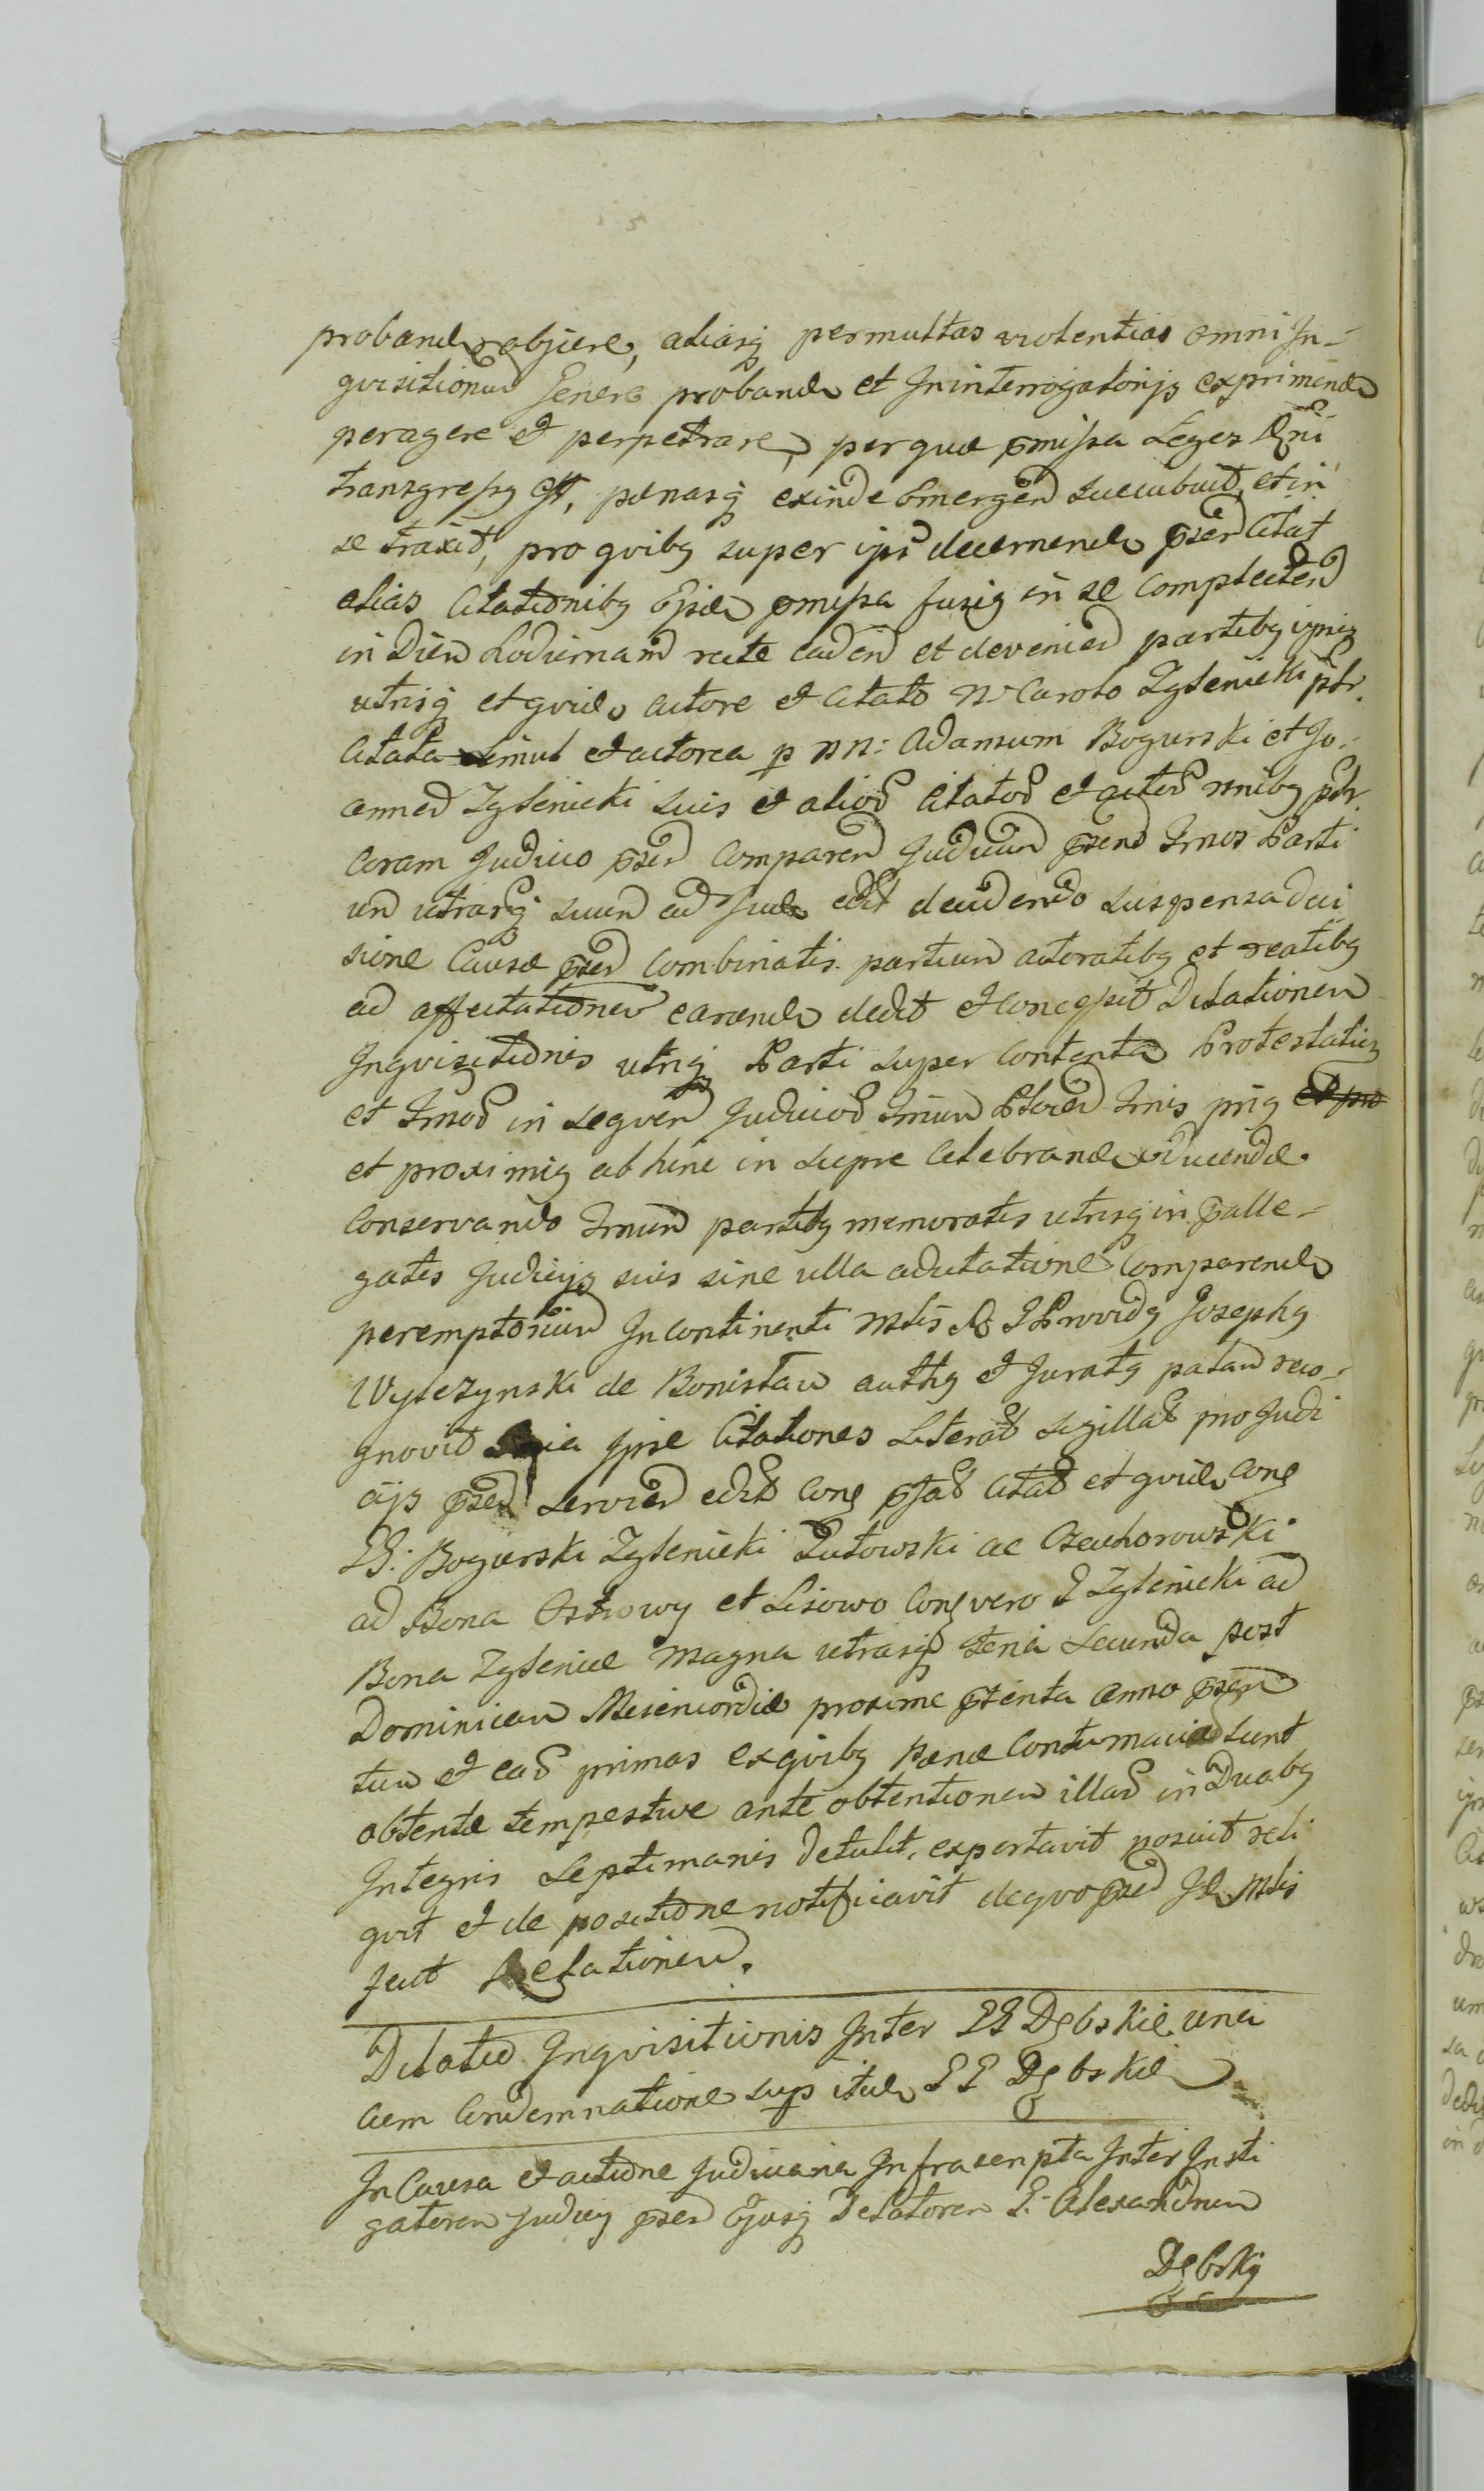 proband objicere, aliasq permultas violentias omni In-
qvisitionum genere proband et In interrogatorijs exprimend
peragere et perpetrare, per quæ pmissa Leges Rni
transgressq est, pænasq exinde Emergen succubuit, et in
se traxit, pro qvibq super ijs decernend pser Citat
alias Citationibq Ejsd pmissa fusiq in se complecten
in Diem hodiernam rite caden et devenien partibq ipsis
utrisq et qvid actore et citato N. Carolo Zglenicki ptr.
Citata simul et actorea p NN: Adamum Bogurski et Jo-
annem Zglenicki suis et alior Citator et actor nnibq ptr.
Coram Judicio psen Comparen Judicium psens Trnos Parti
um utrarq suum ad Jud edit deciden do suspensa deci
sione Causæ psen combinatis partium actoratibq et reatibq
ad affectationem earund dedit et concessit Dilationem
Inqvisitionis utriq Parti super contenta Protestatiu
et Trnor in seqven Judicior Trnum Plocen Trnis priq
et proximiq abhinc in Sierpc Celebrand ducendæ.
Conservando Trnum partibq memoratis utrisq in palle-
gatis Judicijs suis sine ulla adcitatione Comparend
peremptorium Incontinenti Mlis R G Providq Josephq
Wyczynski de Bonislaw authq et Juratq palam reco-
gnovit Quia Ipse Citationes Literat Sigillat pro Judi
cijs psen servien edit Con pfat Citat et qvid Con
GG: Bogurski Zglenicki Lutowski ac Czachorowski
ad Bona Ostrowy et Lisowo Con vero G Zglenicki ad
Bona Zglenice Magna utrasq Feria Secunda post
Dominicam Misericordiæ proxime pterita Anno psen
tum et eas primas ex qvibq Pænæ Contumaciar sunt
obtentæ tempestive ante obtentionem illar in Duabq
Integris Septimanis Detulit, exportavit posuit reli
qvit et de positione notificavit de qvo psen Id Mlis
fecit Relationem.
Dilatio Inqvisitionis Inter GG Dębskie una
cum Condemnatione sup itid GG Dębskie
In Causa et actione Judiciaria Infrascripta Inter Insti
gatorem Judicij psen Ejusq Delatorem G. Alexandrum
Dębskij